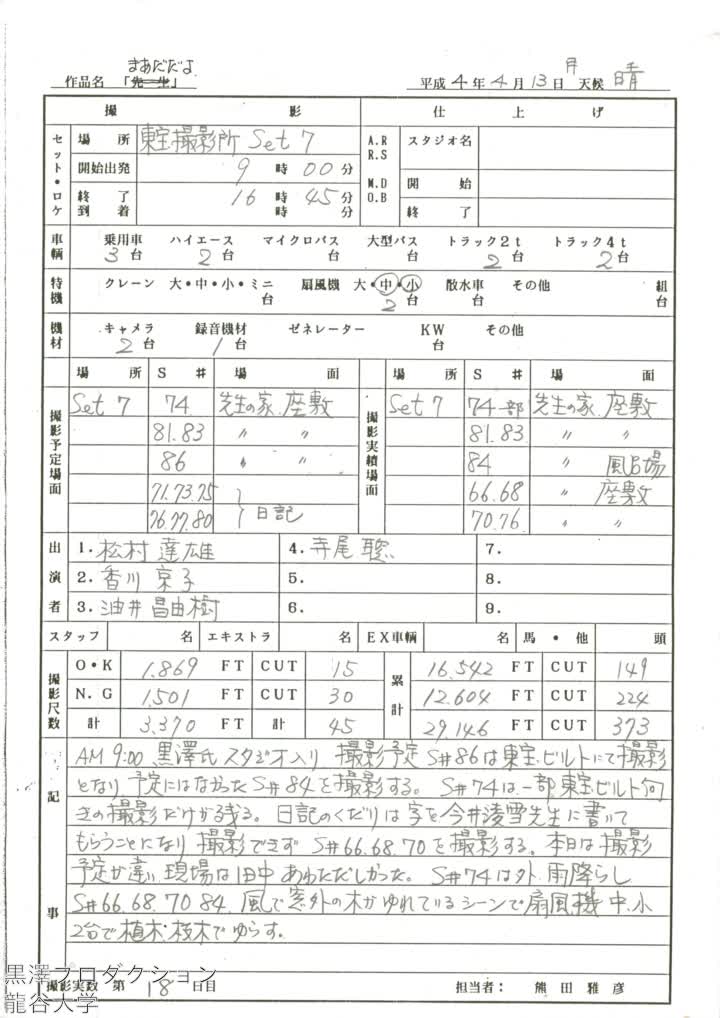 まあだだよ
作品名 「先生」 平成 4 年 4 月 13 日 月 天候 晴
撮 影 仕 上 げ
セット・ロケ 場所 東宝撮影所 Set 7 A.R R.S M.D O.B スタジオ名
開始出発 9 時 00 分 開始
終了 16 時 45 分 終了
到着 時 分
車輌 乗用車 3台 ハイエース 2台 マイクロバス 台 大型バス 台 トラック2t 2台 トラック4t 2台
特機 クレーン 大・中・小・ミニ 台 扇風機 大・中・小 2台 散水車 台 その他 組 台
機材 キャメラ 2台 録音機材 1台 ゼネレーター KW 台 その他
撮影予定場面 場所 S# 場面 撮影実績場面 場所 S# 場面
Set 7 74 先生の家 座敷 Set 7 74一部 先生の家 座敷
81.83 〃 〃 81.83 〃 〃
86 〃 〃 84 〃 風呂場
71.73.75 66.68 〃 座敷
76.77.80 日記 70.76 〃 〃
出演者 1. 松村達雄 4. 寺尾聰 7.
2. 香川京子 5. 8.
3. 油井昌由樹 6. 9.
スタッフ 名 エキストラ 名 EX車輌 名 馬・他 頭
撮影尺数 O・K 1.869 FT CUT 15 累計 16.542 FT CUT 149
N.G 1.501 FT CUT 30 12.604 FT CUT 224
計 3.370 FT 計 45 29.146 FT CUT 373
記事
AM 9:00 黒澤氏 スタジオ入り 撮影予定 S#86は東宝ビルトにて撮影
となり、予定にはなかった S#84を撮影する。 S#74は一部 東宝ビルト向
きの撮影だけが残る。 日記のくだりは字を今井凌雪先生に書いて
もらうことになり 撮影できず S#66.68.70を撮影する。本日は撮影
予定が違い 現場は日中 あわただしかった。 S#74は外 雨降らし
S#66.68.70.84. 風で窓外の木がゆれているシーンで扇風機 中.小
2台で植木・枝木でゆらす。
撮影実数 第 18 日目 担当者: 熊田雅彦
黒澤プロダクション
龍谷大学